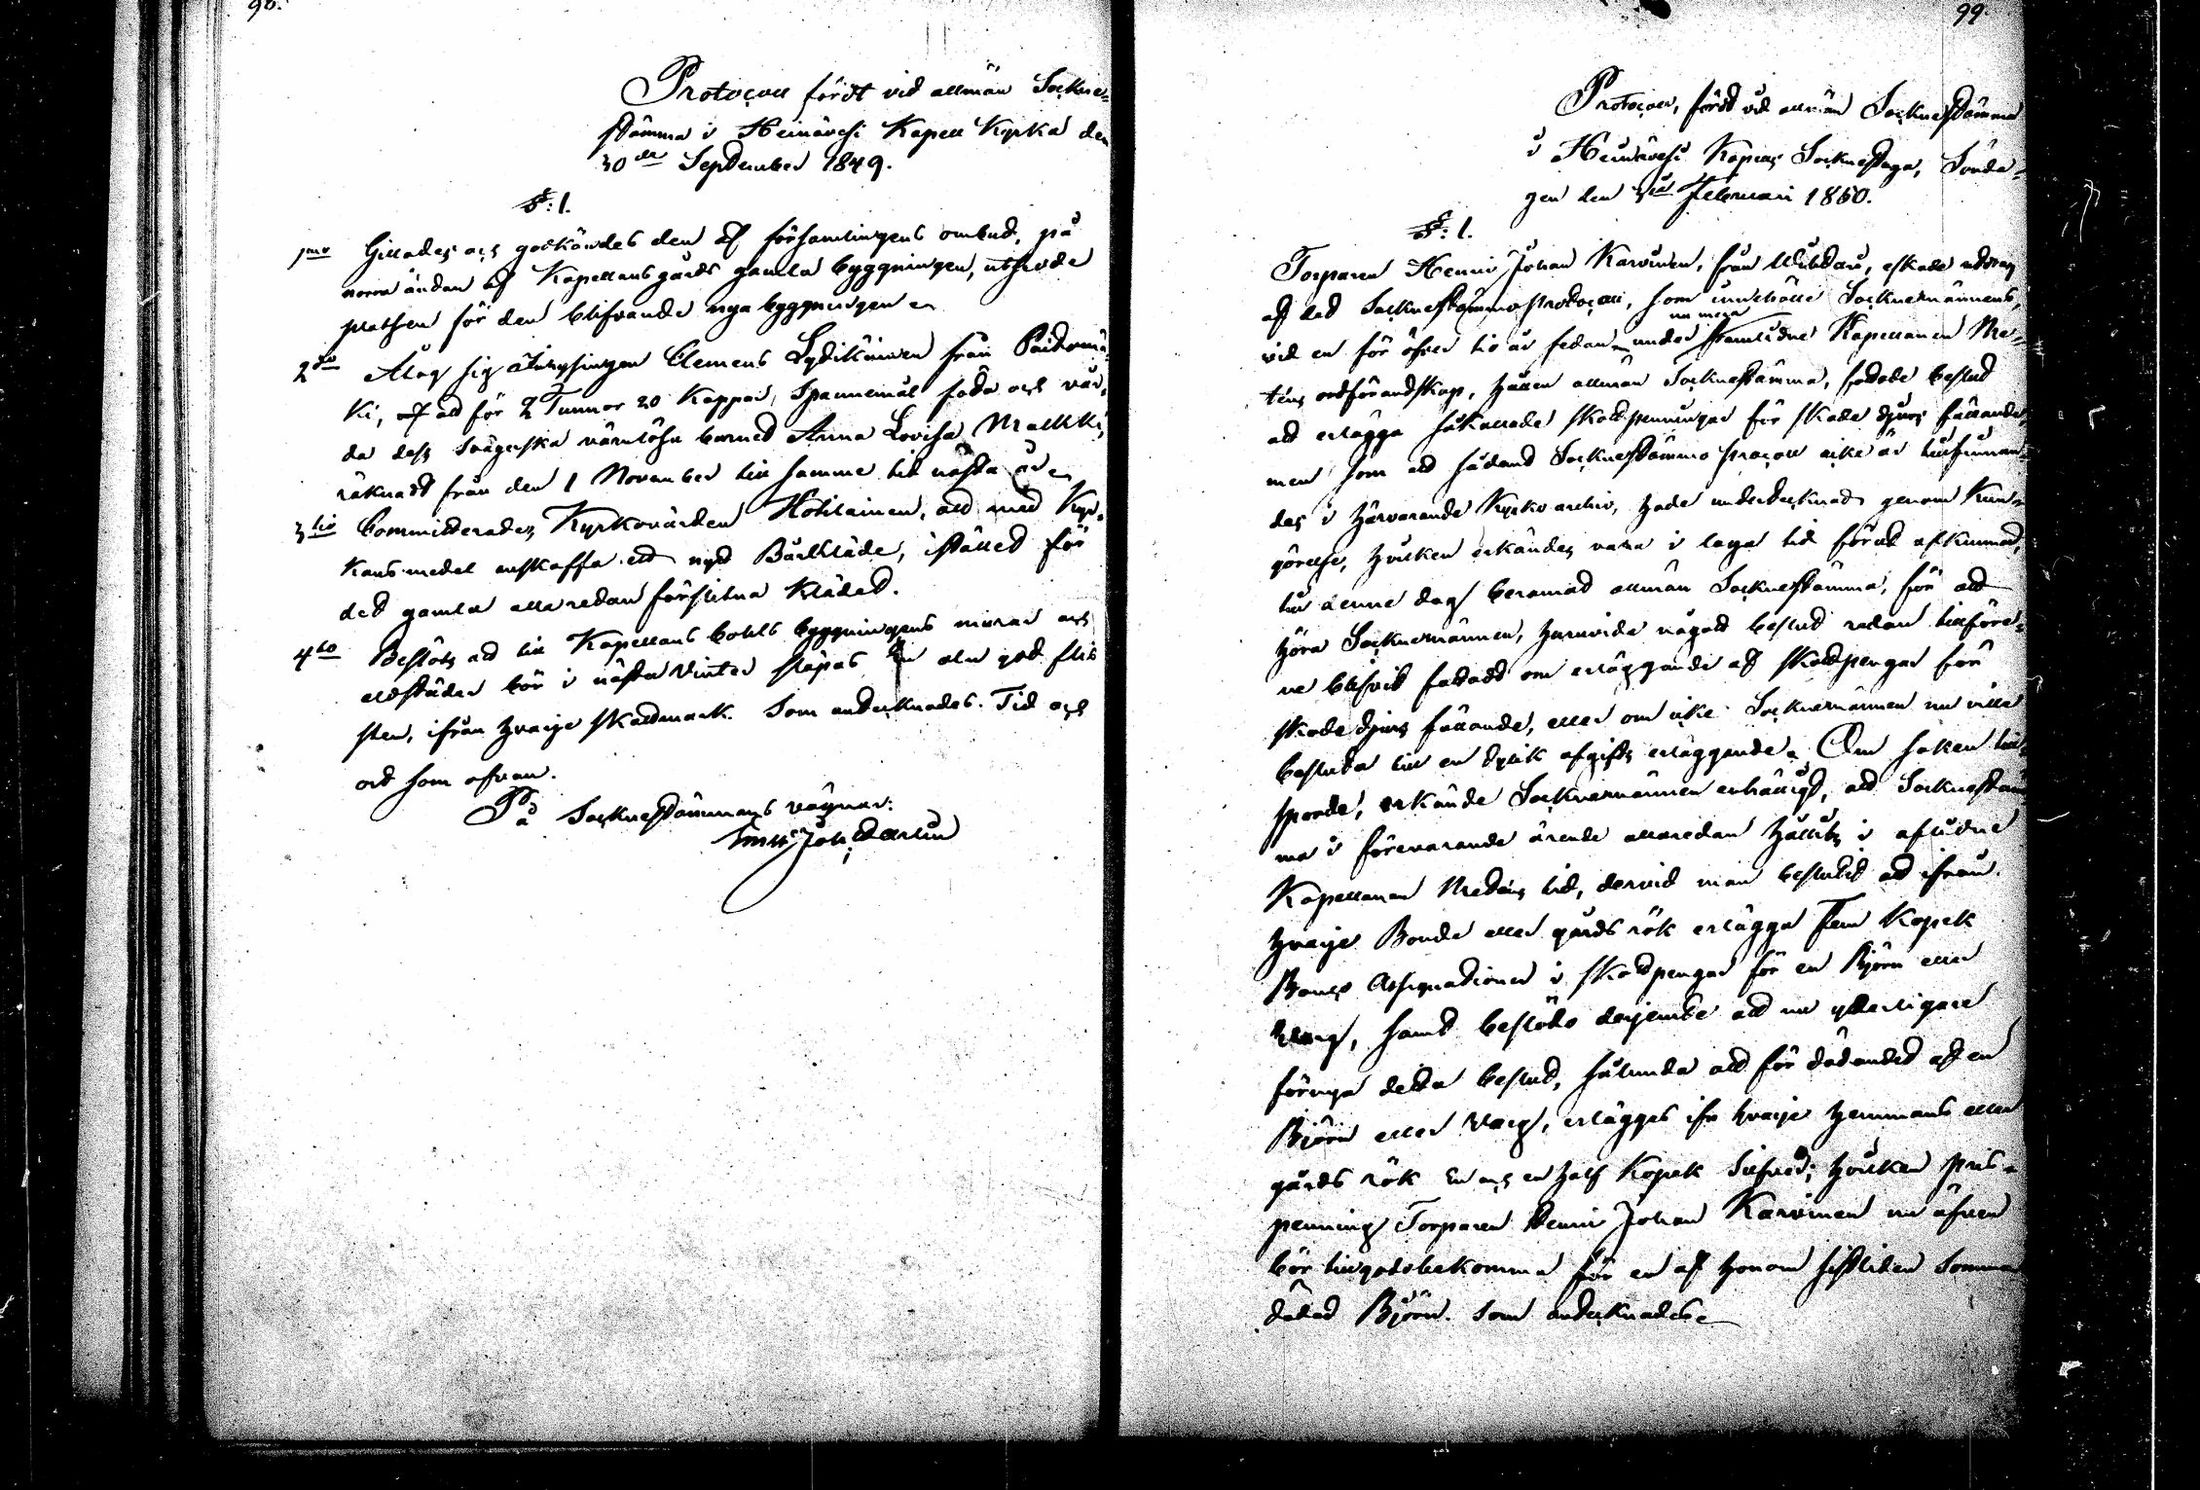 98.
Protocoll fördt vid allmän Sockne-
stämma i Heinävesi Kapell Kyrka den
30de September 1849.
§: 1.
1mo Gillades och godkändes den af församlingens ombud, på
norra ändan af Kapellansgårds gamla byggningen, utsedde
platsen för den blifvande nya byggningen.
2do Åtog sig Inhysingen Clemens Lydikäinen från Paidermä-
ki, att för 2 Tunnor 20 Kappar Spannemål föda och vår-
da dess Svägerska värnlösa barnet Anna Lovisa Malkki,
räknadt från den 1 November till samma tid nästa år.
3tio Committerades Kyrkovärden Hotilainen, att med Kyr-
kans medel anskaffa ett nytt Bårkläde, istället för
det gamla allaredan förslitna Klädet.
4to Beslöts att till Kapellans bohls byggningens murar och
eldstäder bör i nästa Vinter släpas En aln god flis
sten, ifrån hvarje skattmark. Som antecknades. Tid och
ort som ofvan.
På Socknestämmans vägnar:
Joh:
99.
Protocoll, fördt vid allmän Socknestämma
i Heinävesi Kapells Socknestuga, Sönda-
gen den 3de Februari 1850.
§: 1.
Torparen Henric Johan Karvinen, från, eskade utdrag
af det Socknestämmo protocoll, som innehölle Socknemännens,
vid en för öfver tio år sedan under nu mera framlidne Kapellanen Me-
téns ordförandskap, hållen allmän Socknestämma, fattade beslut
att erlägga såkallade skottpenningar för skade djurs fällande,
men som ett sådant Socknestämmo protocoll icke är tillfinnan-
des i härvarande Kyrko archiv, hade undertecknad genom Kun-
görelse, hvilken erkändes vara i laga tid förut afkunnad,
till denne dag beramat allmän Socknestämma, för att
höra Socknemännen, huruvida något beslut redan tillföre-
ne blifvit fattadt om erläggande af skottpengar för
skade djurs fällande, eller om icke Socknemännen nu ville
besluta till en dylik afgifts erläggande. Om saken till-
sporde, erkände Socknemännen enhälligt, att Socknestäm
ma i förevarande ärende allaredan hållits i aflidne
Kapellanen Meténs tid, dervid man beslutit att ifrån
hvarje Bonde eller gårds rök erlägga Fem Kopek
Banco Assignationer i skottpengar för en Björn eller
Varg, samt beslöto derjemte att nu ytterligare
förnya detta beslut, sålunda att för dödandet af en
Björn eller Varg, erlägges ifr hvarje Hemmans eller
gårds rök En och en half Kopek Silfver; hvilken pris-
penning Torparen Henric Johan Karvinen nu äfven
bör tillgodobekomma för en af honom sistliden Sommar
dödad Björn. Som antecknades.